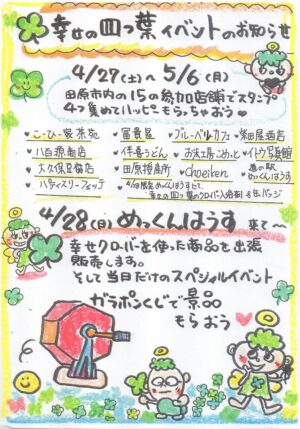 幸せの四つ葉イベントのお知らせ
4/27(土)〜5/6(月)
田原市内の15の参加店舗でスタンプ
4つ集めてハッピーもらっちゃおう♡
♥こーひー家茶苑 ♥冨貴屋 ♥ブルーベルカフェ ♥柴田屋酒店
♥八百源商店 ♥伴喜うどん ♥お米工房こめっと ♥イトウ写真館
♥大久保星舗店 ♥田原授産所 ♥choeiken ♥道の駅めっくんはうす
♥パティスリーフェッテ
幸せの四つ葉のクローバー入浴剤 & 缶バッジ
4/28(月)めっくんはうす 東で〜
幸せクローバーを使った商品を出張
販売します。
そして当日だけのスペシャルイベント
ガラポンくじで景品
もらおう